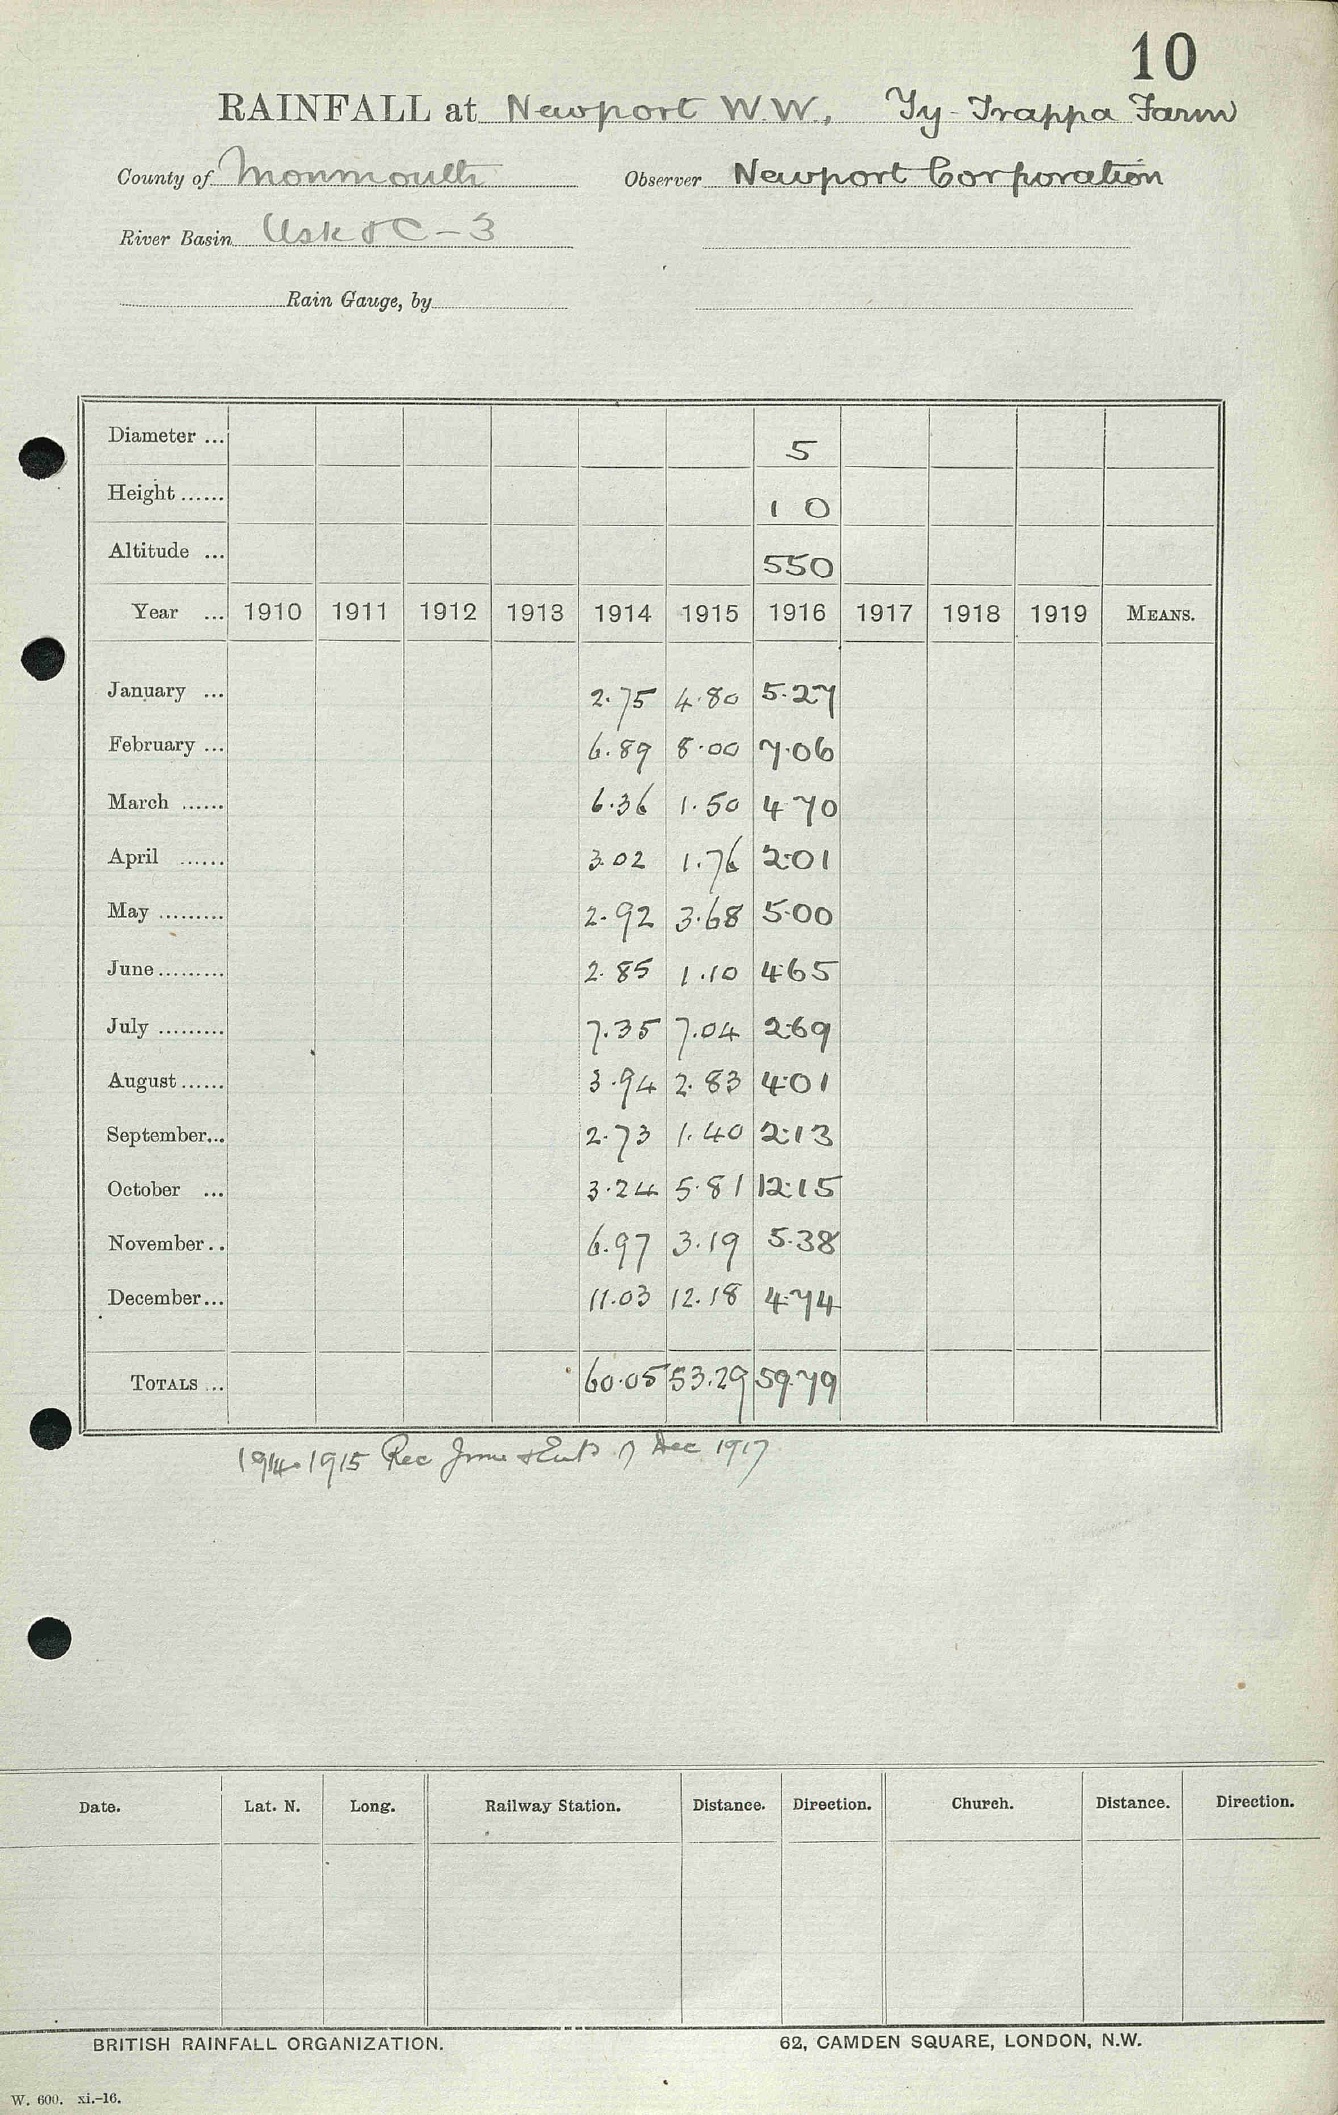 10
RAINFALL at Newport W.W., Ty-Trappa Farm
County of Monmouth Observer Newport Corporation
River Basin Usk & C-3
Rain Gauge, by
Diameter ... 5
Height ...... 1 0
Altitude ... 550
Year ... 1910 1911 1912 1913 1914 1915 1916 1917 1918 1919 MEANS.
January ... 2.75 4.80 5.27
February ... 6.89 8.00 7.06
March ...... 6.36 1.50 4.70
April ...... 3.02 1.76 2.01
May ......... 2.92 3.68 5.00
June ......... 2.85 1.10 4.65
July ......... 7.35 7.04 2.69
August ...... 3.94 2.83 4.01
September... 2.73 1.40 2.13
October ... 3.24 5.81 12.15
November .. 6.97 3.19 5.38
December ... 11.03 12.18 4.74
TOTALS ... 60.05 53.29 59.79
1914-1915 Rec Dec 1917
Date. Lat. N. Long. Railway Station. Distance. Direction. Church. Distance. Direction.
BRITISH RAINFALL ORGANIZATION. 62, CAMDEN SQUARE, LONDON, N.W.
W. 600. xi.-16.